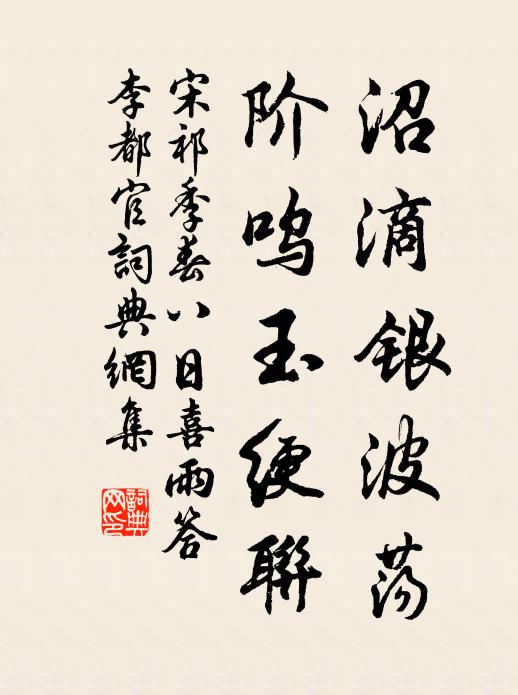 沼滴银波荡
阶鸣玉绠聯
宋祁季春八日喜雨答
李都官詞典網集
詞典网印